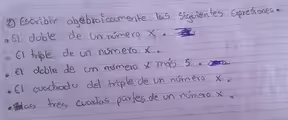 2) Escribir algebraicamente las siguientes expresiones.
• El doble de un número x.
• El triple de un número x.
• El doble de un número x más 5.
• El cuadrado del triple de un número x.
• Las tres cuartas partes de un número x.